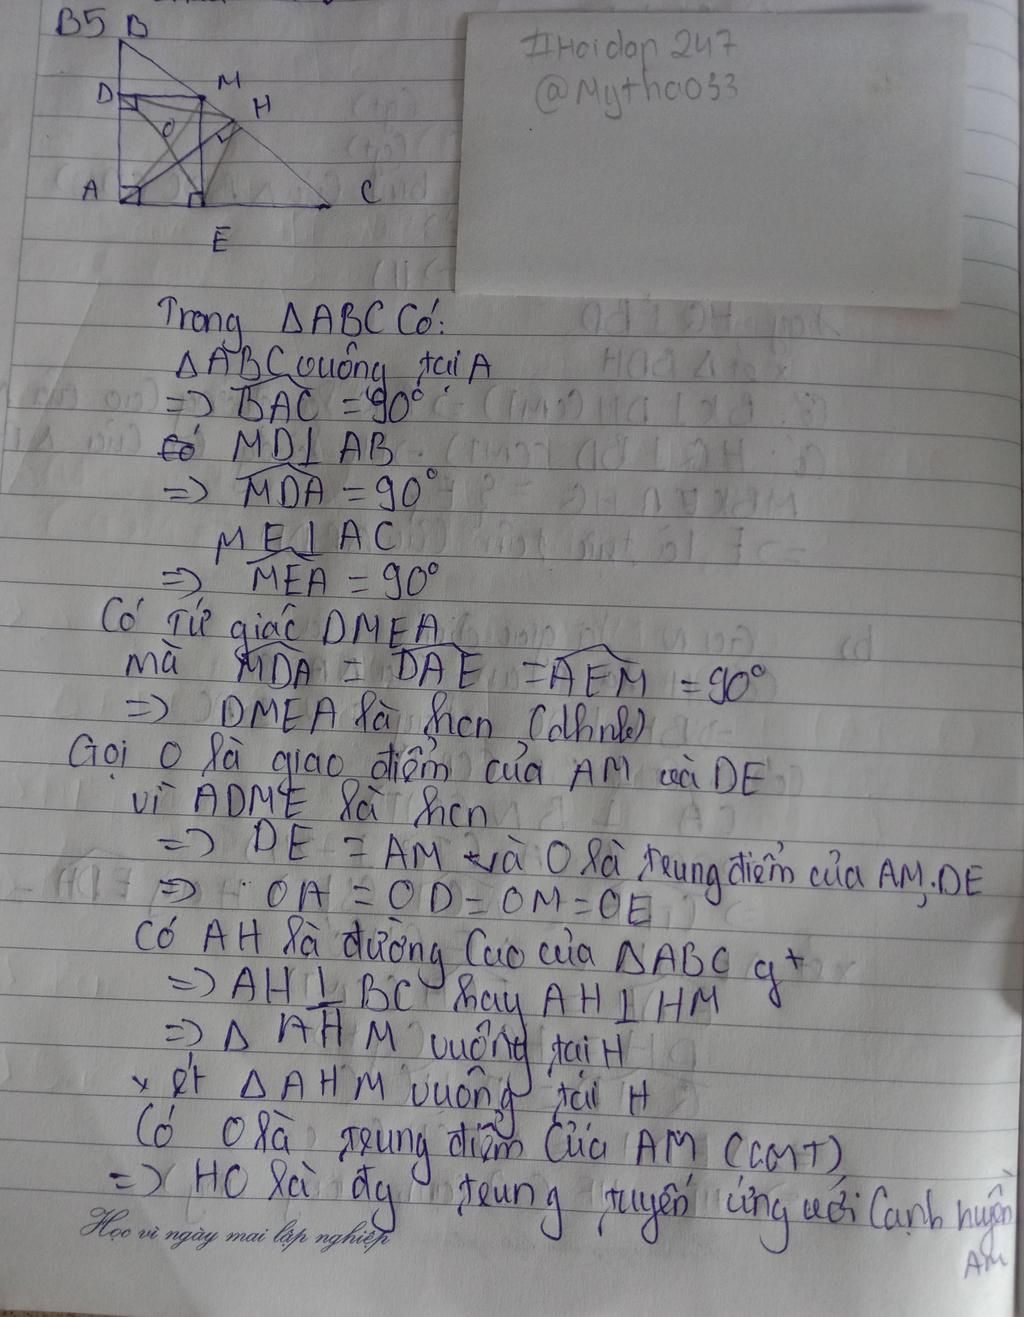 B5 B
#Hoidap 247
@Mythao33
D M H
O
A C
E
Trong ΔABC Có:
ΔABC vuông tại A
=> BAC = 90°
Có MD⊥ AB
=> MDA = 90°
ME⊥AC
=> MEA = 90°
Có Tứ giác DMEA
mà MDA = DAE = AEM = 90°
=> DMEA là hcn (dhnb)
Gọi O là giao điểm của AM và DE
vì ADME là hcn
=> DE = AM và O là trung điểm của AM, DE
=> OA = OD = OM = OE
Có AH là đường Cao của ΔABC gt
=> AH ⊥ BC hay AH ⊥ HM
=> Δ AHM vuông tại H
xét ΔAHM vuông tại H
Có O là trung điểm Của AM (CMT)
=> HO là đg trung tuyến ứng với Cạnh huyền
AM
Học vì ngày mai lập nghiệp